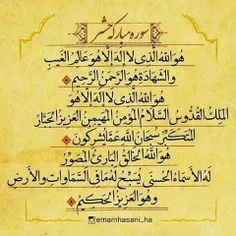 سوره مبارکه حشر
هُوَ اللَّهُ الَّذِي لَا إِلَهَ إِلَّا هُوَ عَالِمُ الْغَيْبِ
وَالشَّهَادَةِ هُوَ الرَّحْمَنُ الرَّحِيمُ
هُوَ اللَّهُ الَّذِي لَا إِلَهَ إِلَّا هُوَ
الْمَلِكُ الْقُدُّوسُ السَّلَامُ الْمُؤْمِنُ الْمُهَيْمِنُ الْعَزِيزُ الْجَبَّارُ
الْمُتَكَبِّرُ سُبْحَانَ اللَّهِ عَمَّا يُشْرِكُونَ
هُوَ اللَّهُ الْخَالِقُ الْبَارِئُ الْمُصَوِّرُ
لَهُ الْأَسْمَاءُ الْحُسْنَى يُسَبِّحُ لَهُ مَا فِي السَّمَاوَاتِ وَالْأَرْضِ
وَهُوَ الْعَزِيزُ الْحَكِيمُ
emamhasani_ha